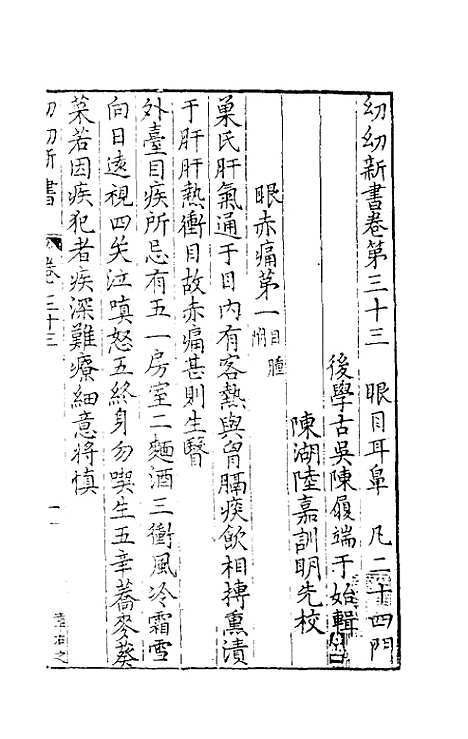 幼幼新書卷第三十三　眼目耳鼻　凡二十四門
後學古吳陳履端于始輯
陳湖陸嘉訓明先校
眼赤痛第一目腫附
巢氏肝氣通于目内有客熱與胷膈痰飲相搏熏漬
于肝肝熱衝目故赤痛甚則生瞖
外臺目疾所忌有五一房室二麵酒三衝風冷霜雪
向日遠視四哭泣嗔怒五終身勿喫生五辛蕎麥葵
菜若因疾犯者疾深難療細意將慎
幼幼新書　卷三十三　一